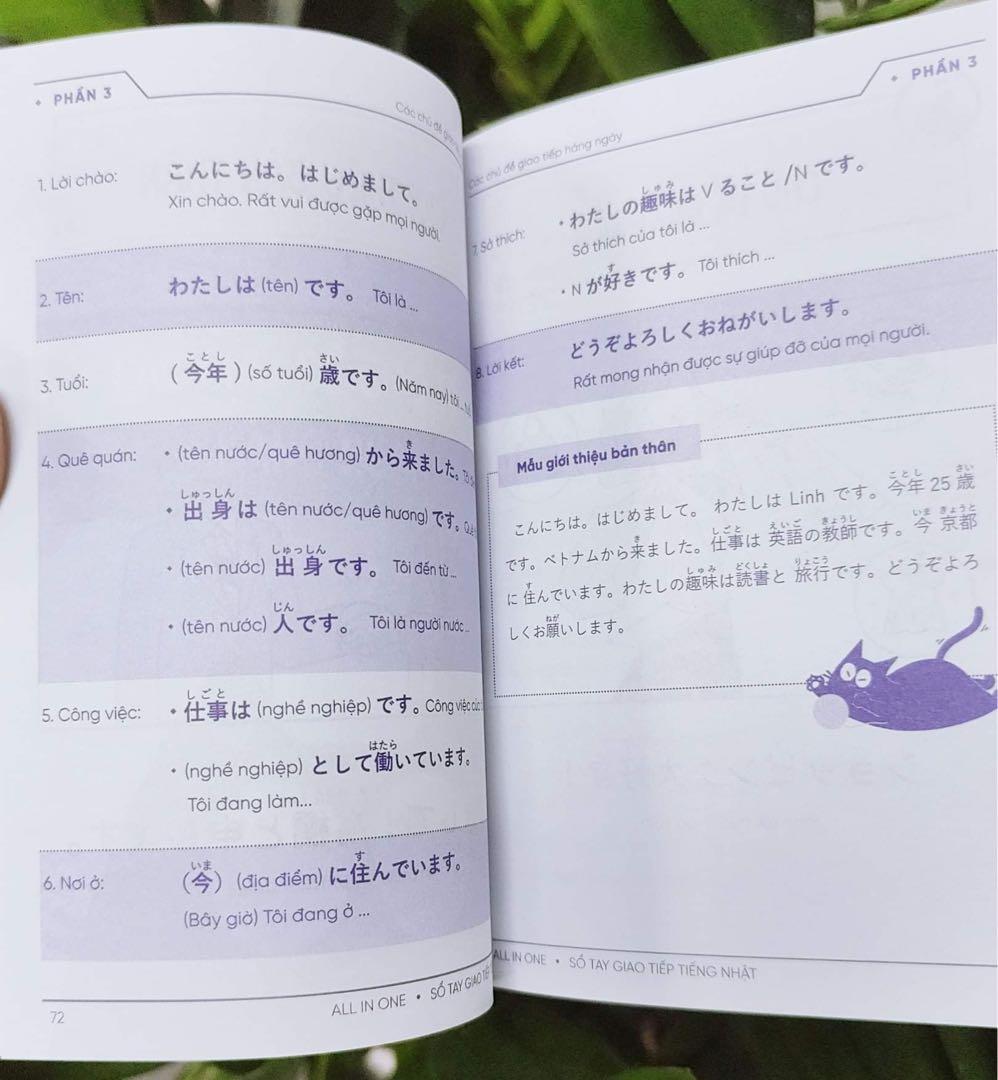 PHẦN 3
Các chủ đề
1. Lời chào: こんにちは。はじめまして。
Xin chào. Rất vui được gặp mọi người.
2. Tên: わたしは (tên) です。 Tôi là ...
ことし さい
3. Tuổi: (今年) (số tuổi) 歳です。(Năm nay) tôi ...
き
4. Quê quán: • (tên nước/quê hương) から来ました。
しゅっしん
• 出身は (tên nước/quê hương) です。
しゅっしん
• (tên nước) 出身です。 Tôi đến từ ...
じん
• (tên nước) 人です。 Tôi là người nước ...
しごと
5. Công việc: • 仕事は (nghề nghiệp) です。Công việc của
はたら
• (nghề nghiệp) として働いています。
Tôi đang làm...
いま す
6. Nơi ở: (今) (địa điểm) に住んでいます。
(Bây giờ) Tôi đang ở ...
ALL IN ONE • SỔ TAY GIAO TIẾP
72
PHẦN 3
Các chủ đề giao tiếp hàng ngày
しゅみ
7. Sở thích: • わたしの趣味は V ること /N です。
Sở thích của tôi là ...
す
• N が好きです。 Tôi thích ...
8. Lời kết: どうぞよろしくおねがいします。
Rất mong nhận được sự giúp đỡ của mọi người.
Mẫu giới thiệu bản thân
ことし さい
こんにちは。はじめまして。 わたしは Linh です。今年 25 歳
き しごと えいご きょうし いま きょうと
です。ベトナムから来ました。仕事は 英語の教師です。今 京都
す しゅみ どくしょ りょこう
に 住んでいます。わたしの趣味は読書と 旅行です。どうぞよろ
ねが
しくお願いします。
ALL IN ONE • SỔ TAY GIAO TIẾP TIẾNG NHẬT